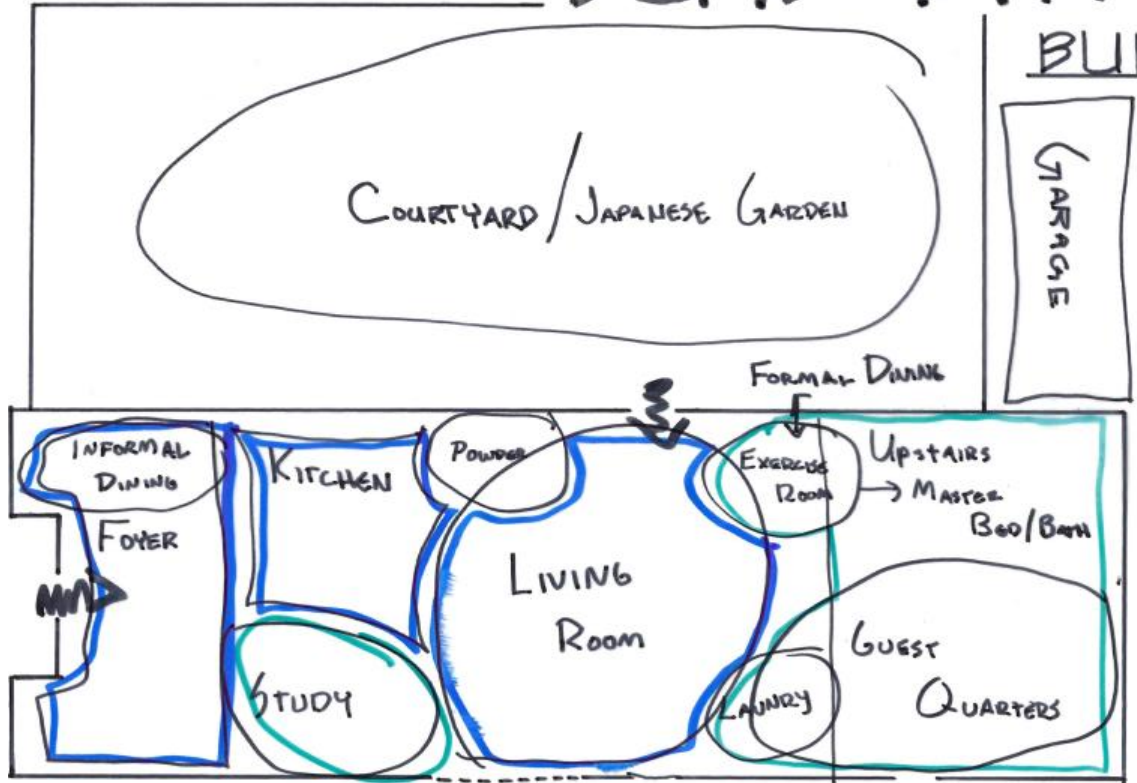 BU
COURTYARD/JAPANESE GARDEN
GARAGE
FORMAL DINING
INFORMAL
DINING
KITCHEN
POWDER
EXERCISE
ROOM
UPSTAIRS
MASTER
BED/BATH
FOYER
LIVING
ROOM
STUDY
LAUNRY
GUEST
QUARTERS